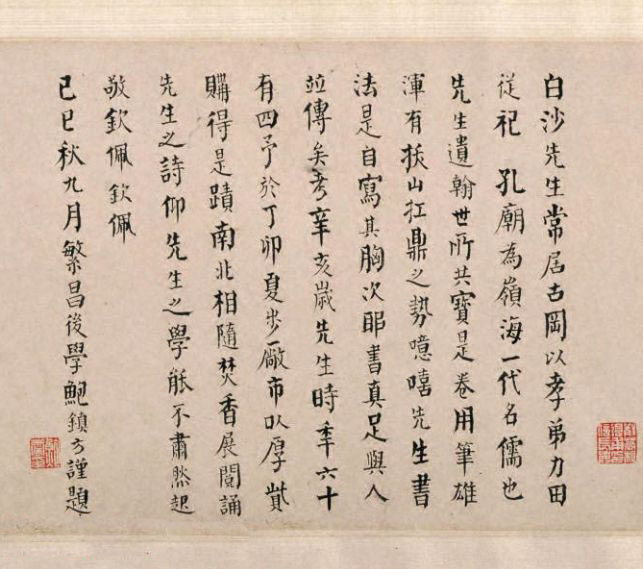 白沙先生常居古岡以孝弟力田
從祀 孔廟為嶺海一代名儒也
先生遺翰世所共寶是卷用筆雄
渾有拔山扛鼎之勢噫嘻先生書
法是自寫其胸次耶書真足與人
竝傳矣考辛亥歲先生時年六十
有四予於丁卯夏步廠市以厚貲
購得是蹟南北相隨焚香展閱誦
先生之詩仰先生之學能不肅然起
敬欽佩欽佩
己巳秋九月繁昌後學鮑鎮方謹題